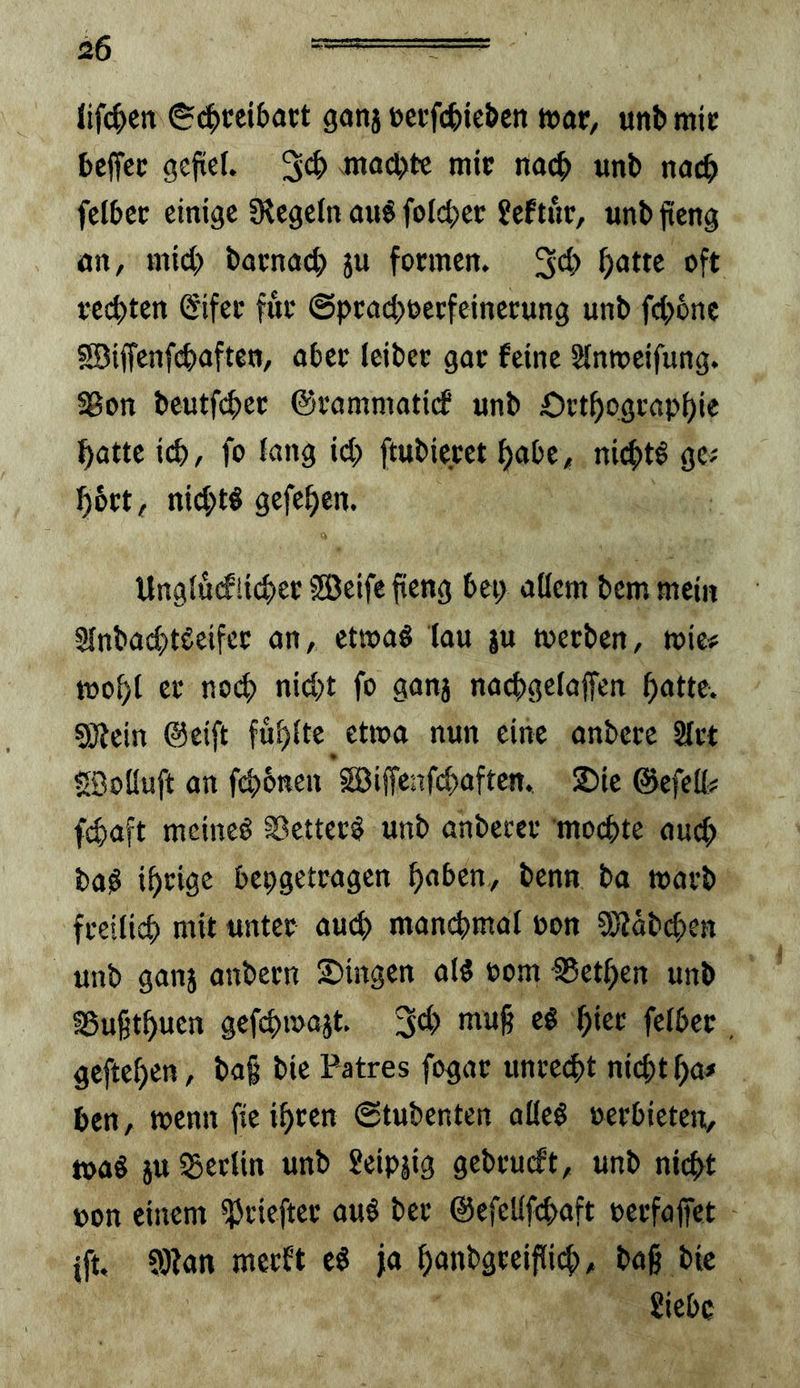 26
lischen Schreibart ganz verschieden war, und mir
besser gefiel. Ich machte mir nach und nach
selber einige Regeln aus solcher Lektür, und fieng
an, mich darnach zu formen. Ich hatte oft
rechten Eifer für Sprachverfeinerung und schöne
Wissenschaften, aber leider gar keine Anweisung.
Von deutscher Grammatick und Orthographie
hatte ich, so lang ich studieret habe, nichts ge-
hört, nichts gesehen.
Unglücklicher Weise fieng bey allem dem mein
Andachtseifer an, etwas lau zu werden, wie-
wohl er noch nicht so ganz nachgelassen hatte.
Mein Geist fühlte etwa nun eine andere Art
Wollust an schönen Wissenschaften. Die Gesell-
schaft meines Vetters und anderer mochte auch
das ihrige beygetragen haben, denn da ward
freilich mit unter auch manchmal von Mädchen
und ganz andern Dingen als vom Bethen und
Bußthuen geschwazt. Ich muß es hier selber
gestehen, daß die Patres sogar unrecht nicht ha-
ben, wenn sie ihren Studenten alles verbieten,
was zu Berlin und Leipzig gedruckt, und nicht
von einem Priester aus der Gesellschaft verfasset
ist. Man merkt es ja handgreiflich, daß die
Liebe